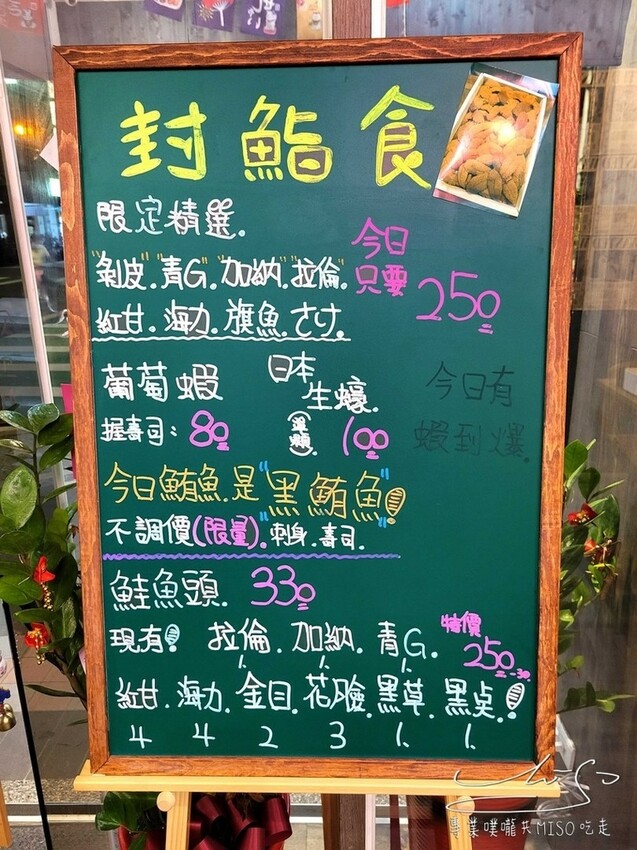 封鮨食
限定精選.
"剝皮"."青G"."加納"."拉倫".
紅甘.海力.旗魚.さけ.
今日
只要 250
葡萄蝦
握壽司: 80
日本
生蠔.
(單顆) 100
今日有
蝦到爆.
今日鮪魚是"黑鮪魚"!
不調價(限量)"刺身.壽司.
鮭魚頭. 330
現有! 拉倫. 加納. 青G.
1. 1. 1.
特價
250.-30
紅甘.海力.金目.花臉.黑草.黑点.!
4 4 2 3 1. 1.
專業噗嚨共MISO吃走